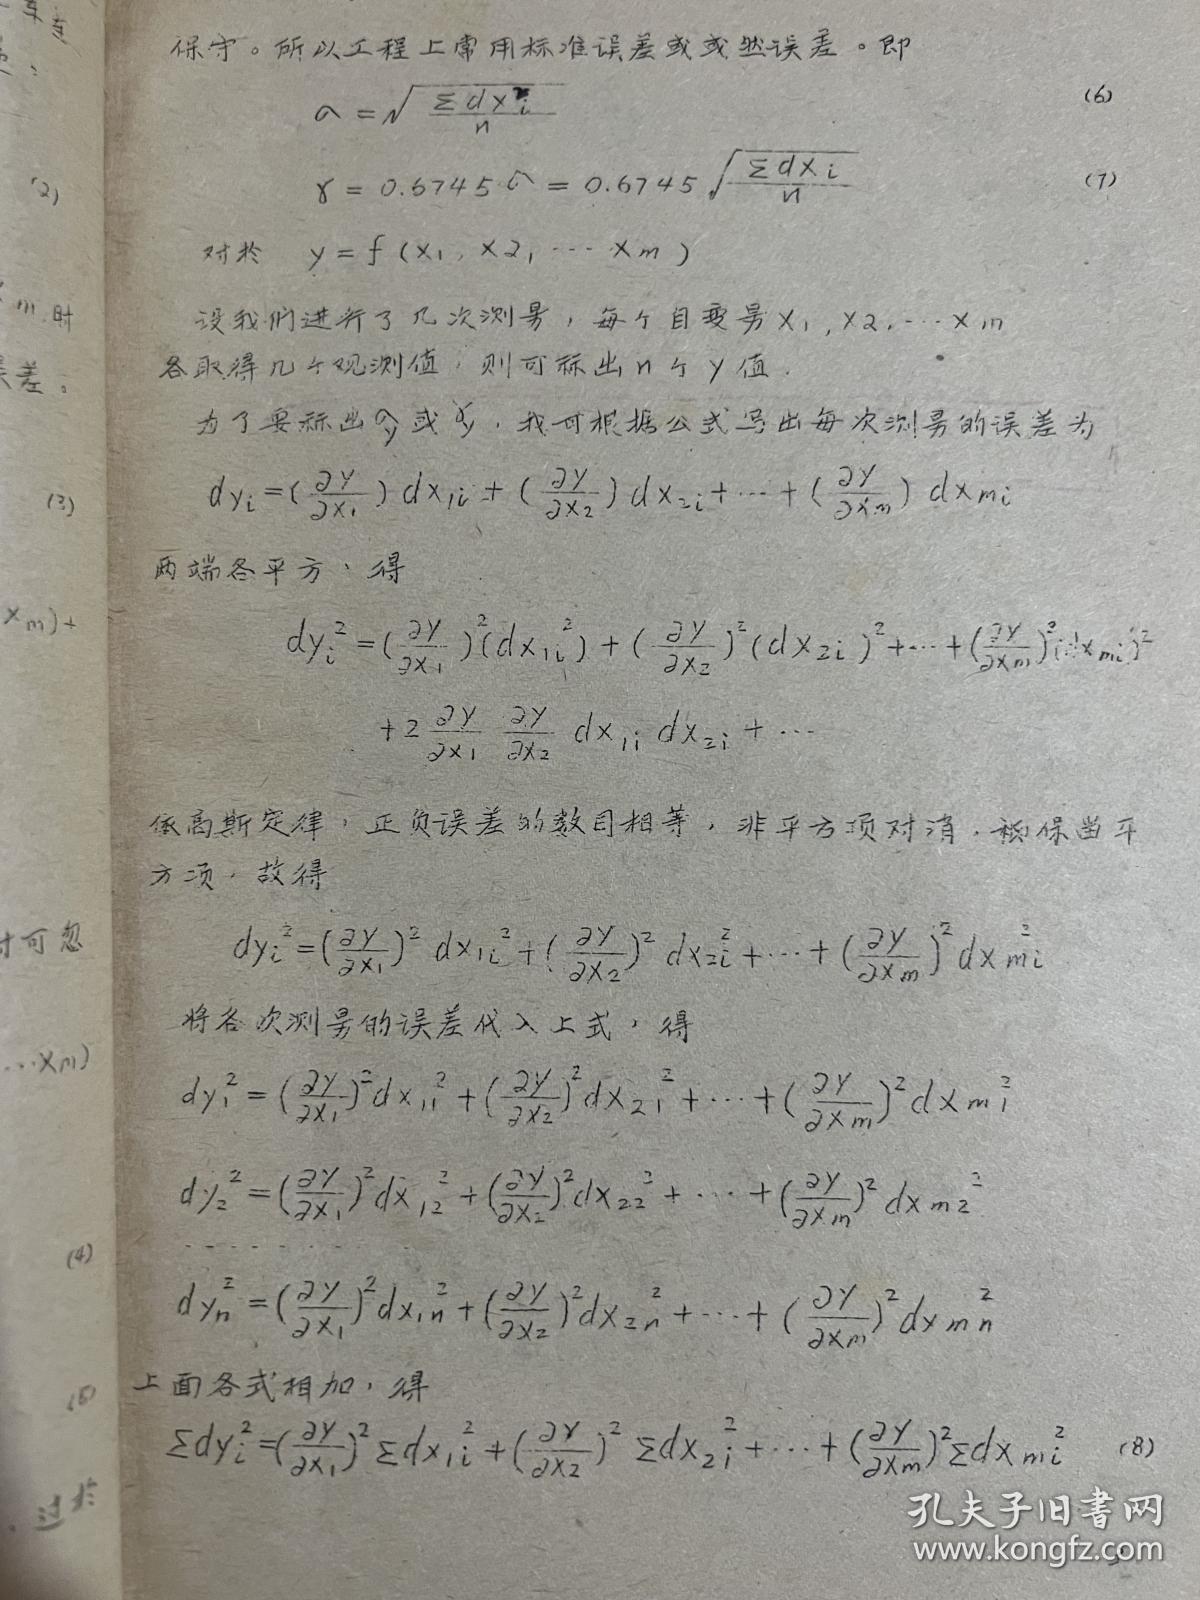 保守。所以工程上常用标准误差或或然误差。即
σ = √(Σdx²i / n) (6)
γ = 0.6745σ = 0.6745 √(Σdxi / n) (7)
对於 y = f (x₁, x₂, … xm)
设我们进行了几次测量，每个自变量x₁, x₂, … xm
各取得几个观测值，则可称出n个y值.
为了要称出σy或γy，我可根据公式写出每次测量的误差为
dyi = (∂y/∂x₁) dx₁i + (∂y/∂x₂) dx₂i + … + (∂y/∂xm) dxmi
两端各平方，得
dyi² = (∂y/∂x₁)²(dx₁i²) + (∂y/∂x₂)²(dx₂i)² + … + (∂y/∂xm)²(dxmi)²
+ 2 ∂y/∂x₁ ∂y/∂x₂ dx₁i dx₂i + …
依高斯定律，正负误差的数目相等，非平方项对消，保留平
方项，故得
dyi² = (∂y/∂x₁)² dx₁i² + (∂y/∂x₂)² dx₂i² + … + (∂y/∂xm)² dxmi²
将各次测量的误差代入上式，得
dy₁² = (∂y/∂x₁)² dx₁₁² + (∂y/∂x₂)² dx₂₁² + … + (∂y/∂xm)² dxm₁²
dy₂² = (∂y/∂x₁)² dx₁₂² + (∂y/∂x₂)² dx₂₂² + … + (∂y/∂xm)² dxm₂²
- - - - - - - -
dyn² = (∂y/∂x₁)² dx₁n² + (∂y/∂x₂)² dx₂n² + … + (∂y/∂xm)² dxmn²
上面各式相加，得
Σdyi² = (∂y/∂x₁)² Σdx₁i² + (∂y/∂x₂)² Σdx₂i² + … + (∂y/∂xm)² Σdxmi² (8)
(2)
m.时
误差。
(3)
xm)+
时可忽
…xm)
(4)
(5)
过於
孔夫子旧书网
www.kongfz.com